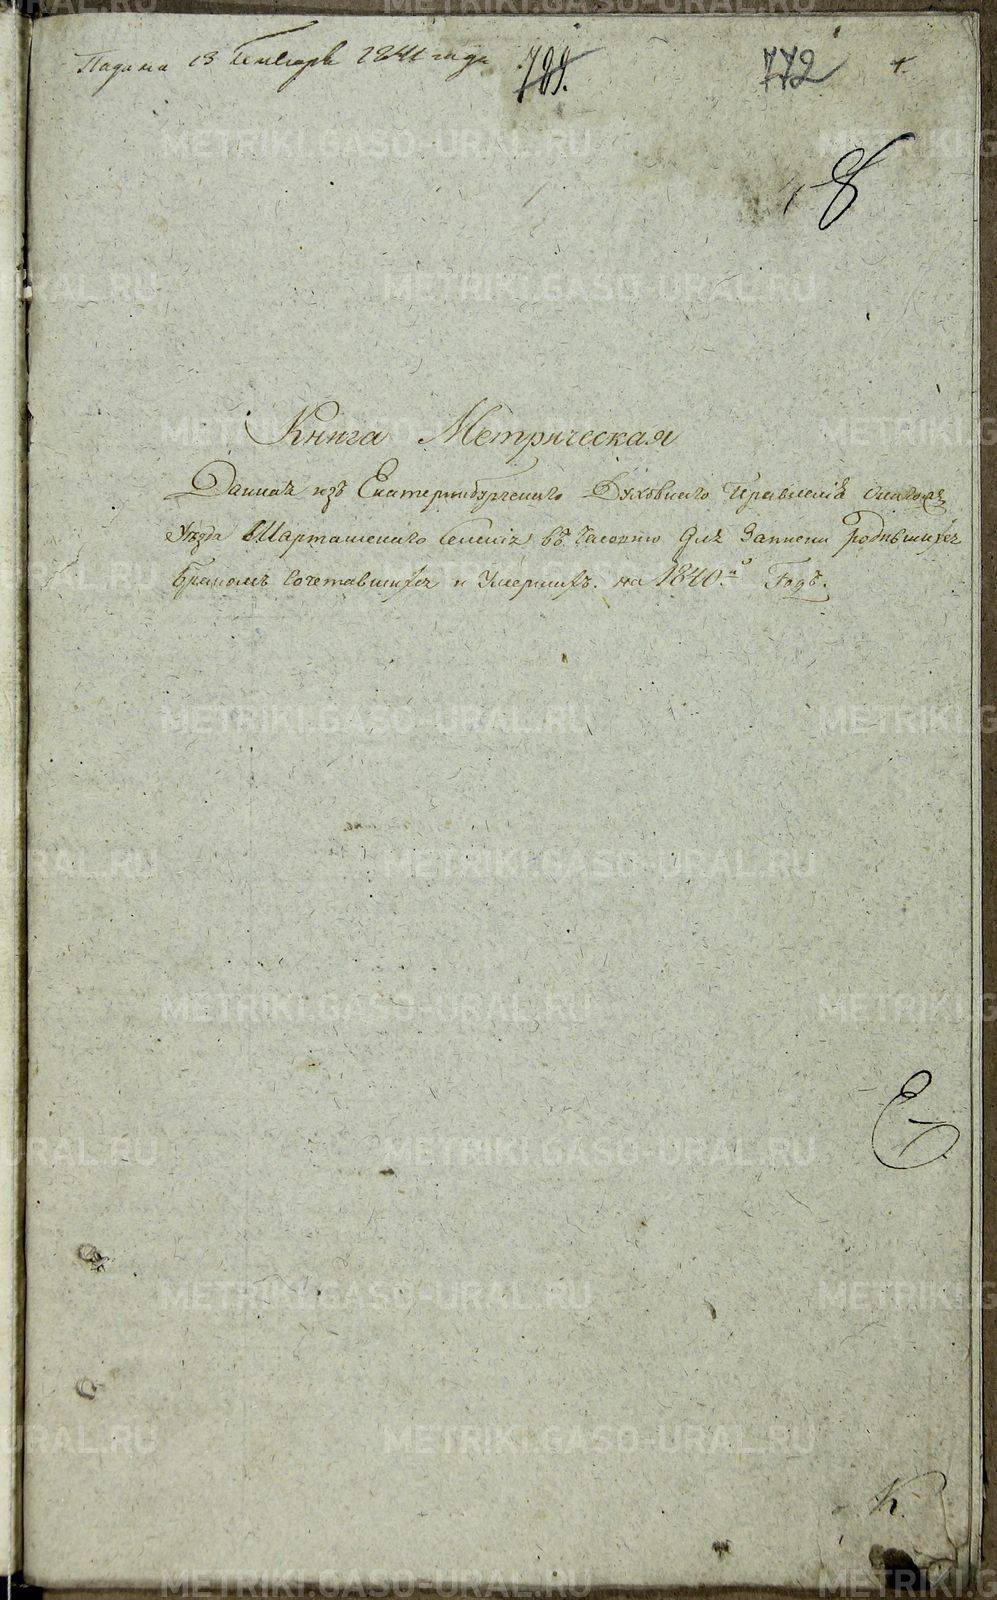 Подана 13 Генваря 1841 года
789. 772
8
Книга Метрическая
Данная изъ Екатеринбургскаго Духовнаго Правленія онаго же
Уѣзда Шарташскаго Селенія въ Часовню для Записки родившихся
Бракомъ Сочетавшихся и Умершихъ. на 1840.й Годъ.
METRIKI.GASO-URAL.RU